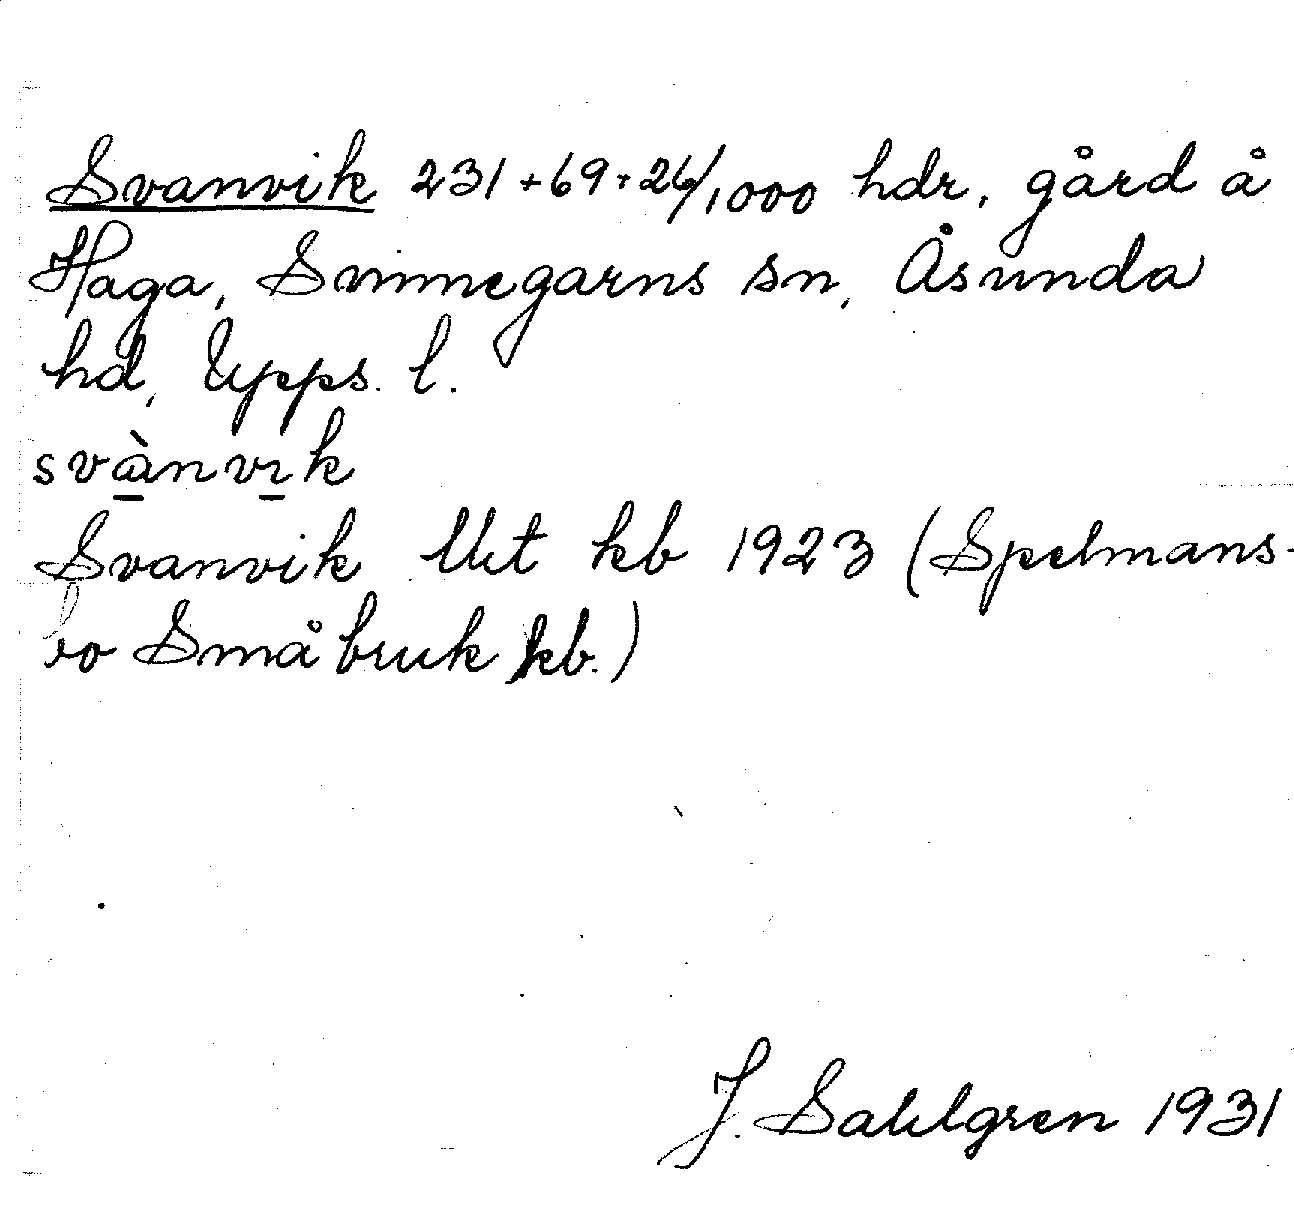 Svanvik 231+69+26/1000 hdr, gård å
Haga, Svinnegarns sn, Åsunda
hd, Upps. l.
svànvik
Svanvik Utt kb 1923 (Spelmans-
bo Småbruk kb.)
J. Sahlgren 1931